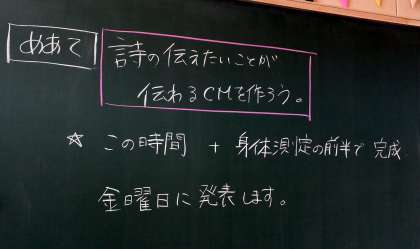 めあて
詩の伝えたいことが
伝わるCMを作ろう。
☆ この時間 + 身体測定の前半で完成
金曜日に発表します。